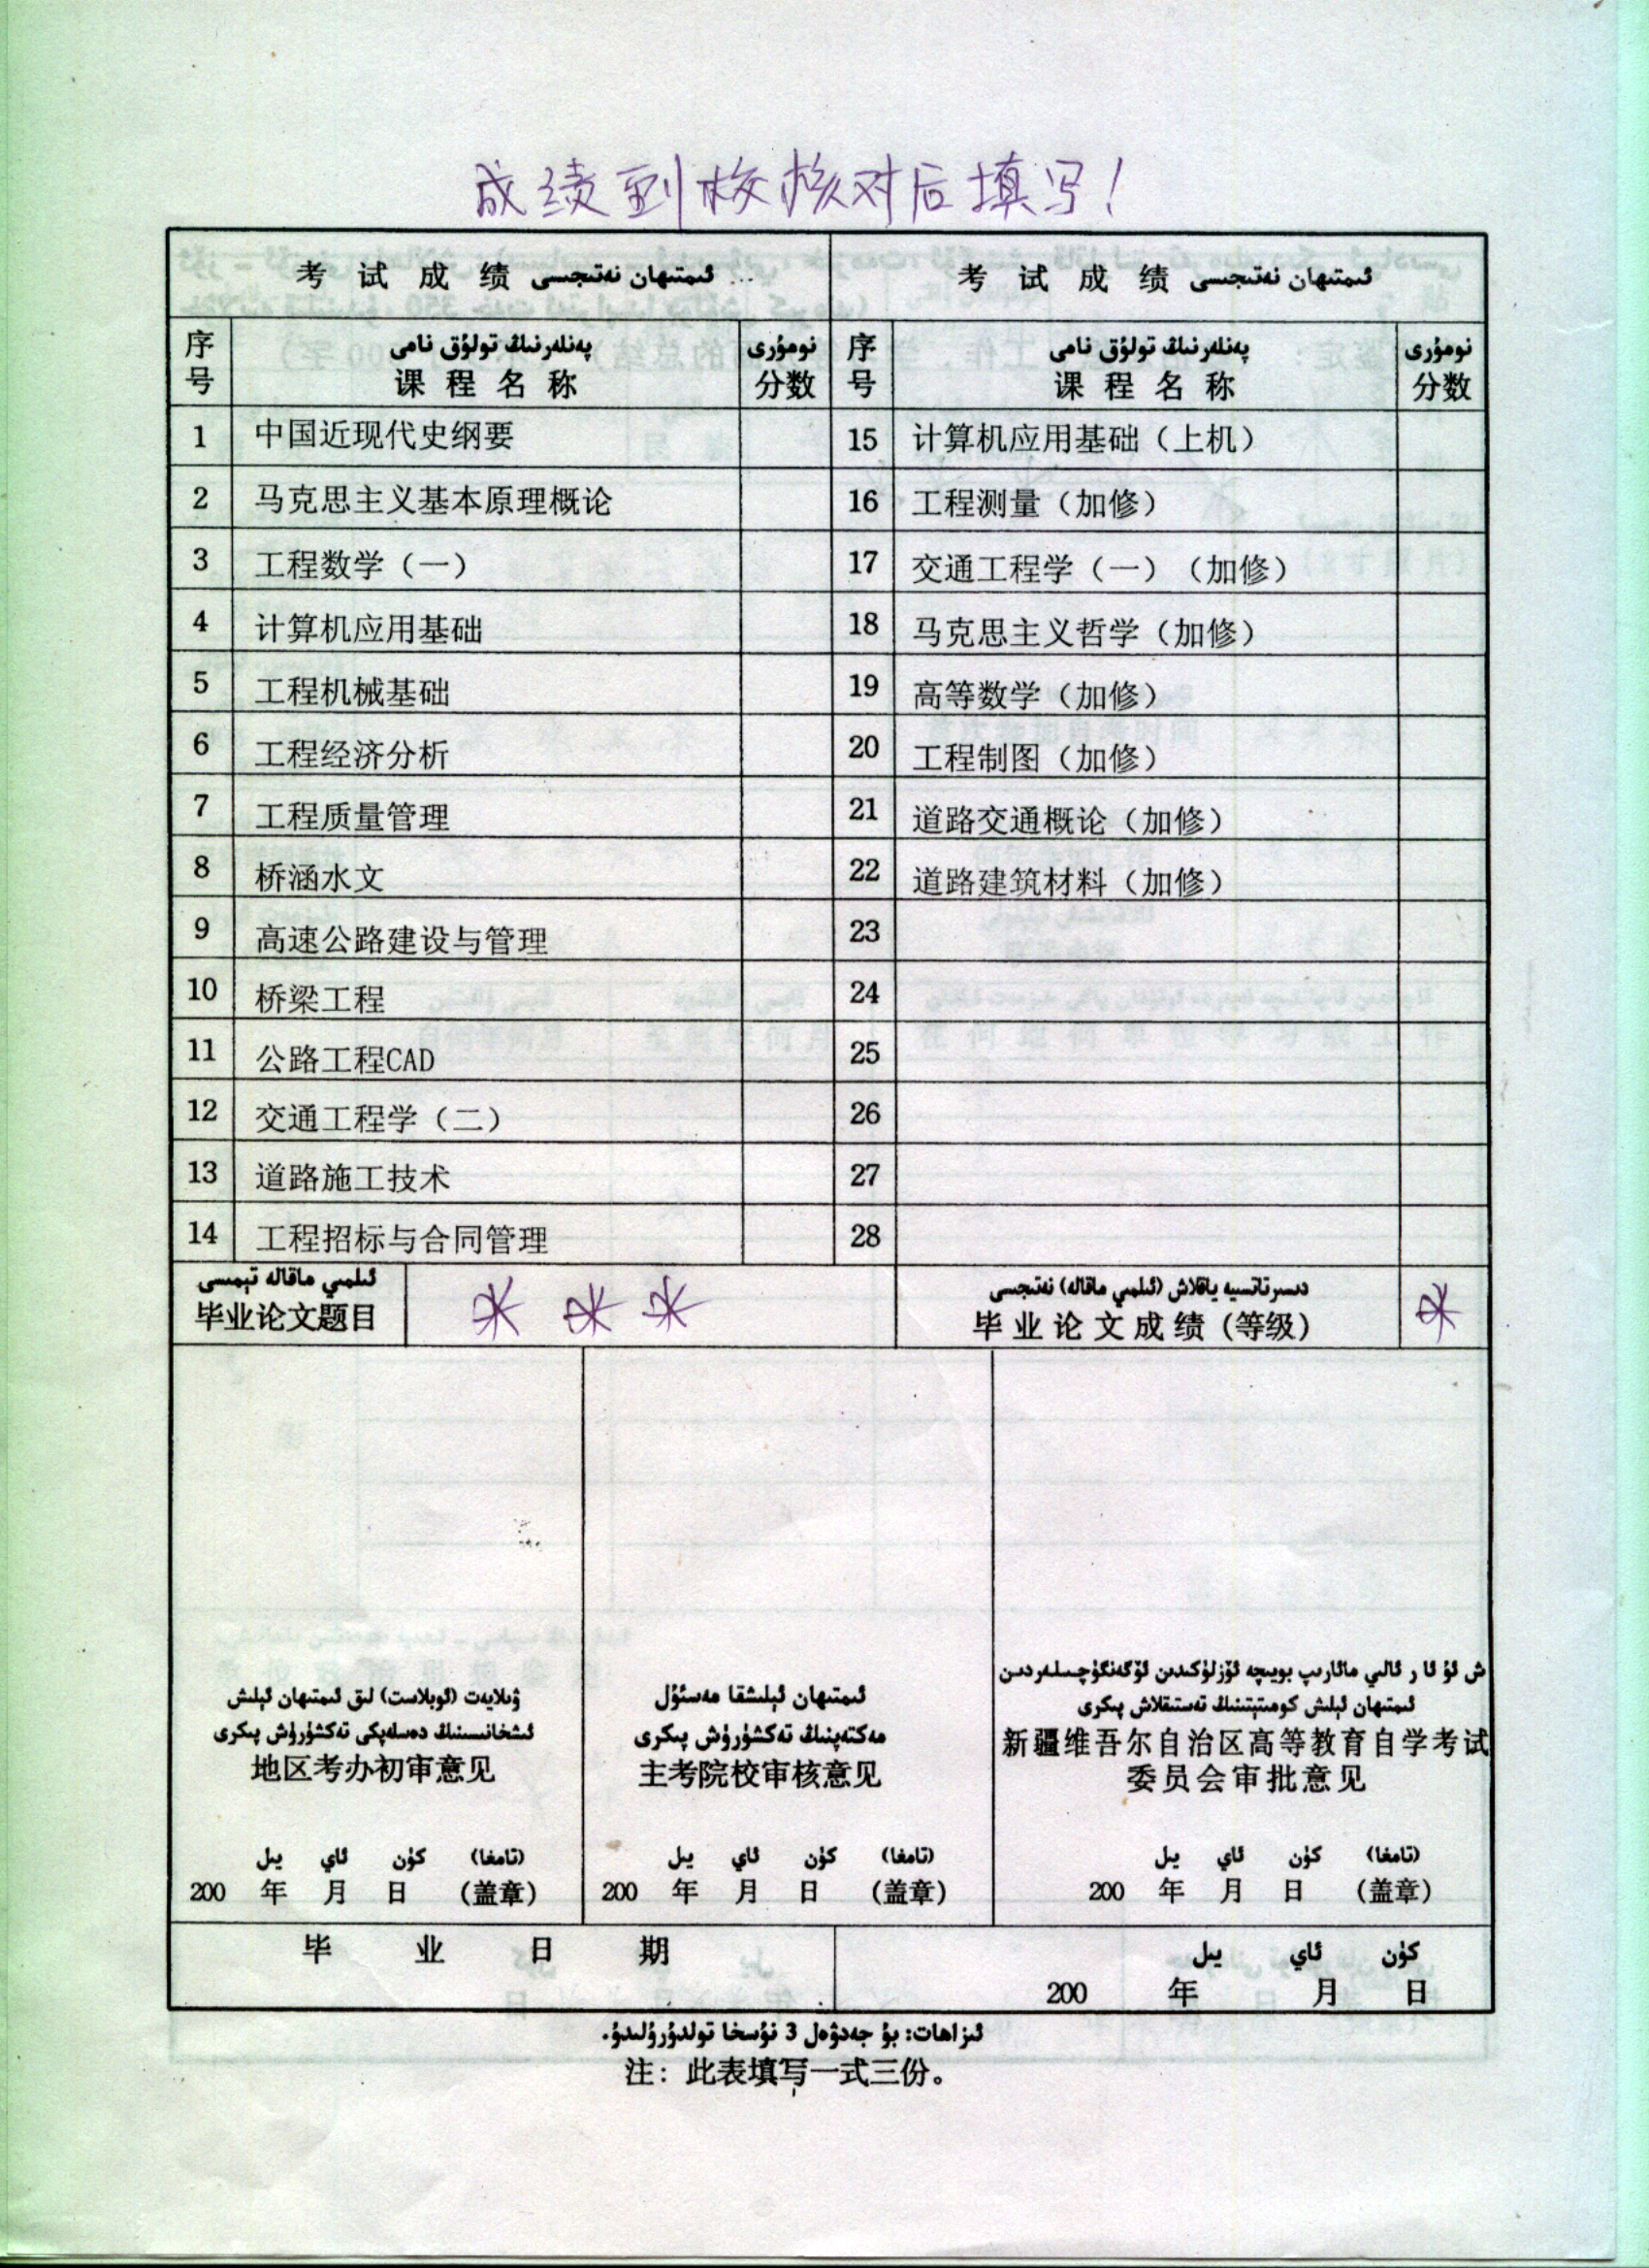 成绩到校核对后填写！
考 试 成 绩 ئىمتىھان نەتىجىسى
考 试 成 绩 ئىمتىھان نەتىجىسى
序号 پەنلەرنىڭ تولۇق نامى 课程名称 نومۇرى 分数
序号 پەنلەرنىڭ تولۇق نامى 课程名称 نومۇرى 分数
1 中国近现代史纲要
2 马克思主义基本原理概论
3 工程数学（一）
4 计算机应用基础
5 工程机械基础
6 工程经济分析
7 工程质量管理
8 桥涵水文
9 高速公路建设与管理
10 桥梁工程
11 公路工程CAD
12 交通工程学（二）
13 道路施工技术
14 工程招标与合同管理
15 计算机应用基础（上机）
16 工程测量（加修）
17 交通工程学（一）（加修）
18 马克思主义哲学（加修）
19 高等数学（加修）
20 工程制图（加修）
21 道路交通概论（加修）
22 道路建筑材料（加修）
23
24
25
26
27
28
ئىلمىي ماقالە تېمىسى
毕业论文题目
دىسىرتاتسىيە ياقلاش (ئىلمىي ماقالە) نەتىجىسى
毕业论文成绩(等级)
ۋىلايەت (ئوبلاست) لىق ئىمتىھان ئېلىش
ئىشخانىسىنىڭ دەسلەپكى تەكشۈرۈش پىكرى
地区考办初审意见
يىل ئاي كۈن (تامغا)
200 年 月 日 (盖章)
ئىمتىھان ئېلىشقا مەسئۇل
مەكتەپنىڭ تەكشۈرۈش پىكرى
主考院校审核意见
يىل ئاي كۈن (تامغا)
200 年 月 日 (盖章)
ش ئۇ ئا ر ئالىي مائارىپ بويىچە ئۆزلۈكىدىن ئۆگەنگۈچىلەردىن
ئىمتىھان ئېلىش كومىتېتىنىڭ تەستىقلاش پىكرى
新疆维吾尔自治区高等教育自学考试
委员会审批意见
يىل ئاي كۈن (تامغا)
200 年 月 日 (盖章)
毕 业 日 期
يىل ئاي كۈن
200 年 月 日
ئىزاھات: بۇ جەدۋەل 3 نۇسخا تولدۇرۇلىدۇ.
注：此表填写一式三份。